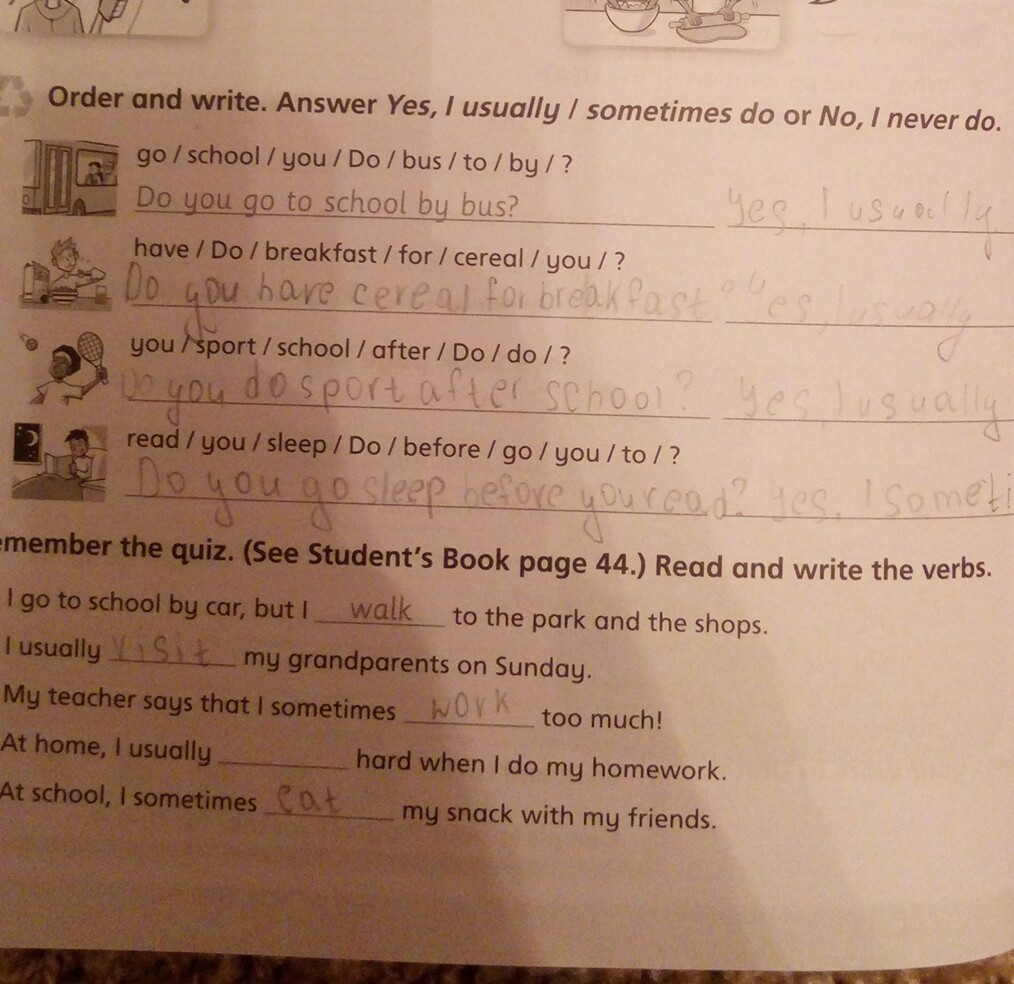 Order and write. Answer Yes, I usually / sometimes do or No, I never do.
go / school / you / Do / bus / to / by / ?
Do you go to school by bus? Yes, I usually
have / Do / breakfast / for / cereal / you / ?
Do you have cereal for breakfast? Yes, I usually
you / sport / school / after / Do / do / ?
Do you do sport after school? Yes I usually
read / you / sleep / Do / before / go / you / to / ?
Do you go sleep before you read? Yes, I someti
emember the quiz. (See Student's Book page 44.) Read and write the verbs.
I go to school by car, but I walk to the park and the shops.
I usually visit my grandparents on Sunday.
My teacher says that I sometimes work too much!
At home, I usually ________ hard when I do my homework.
At school, I sometimes eat my snack with my friends.